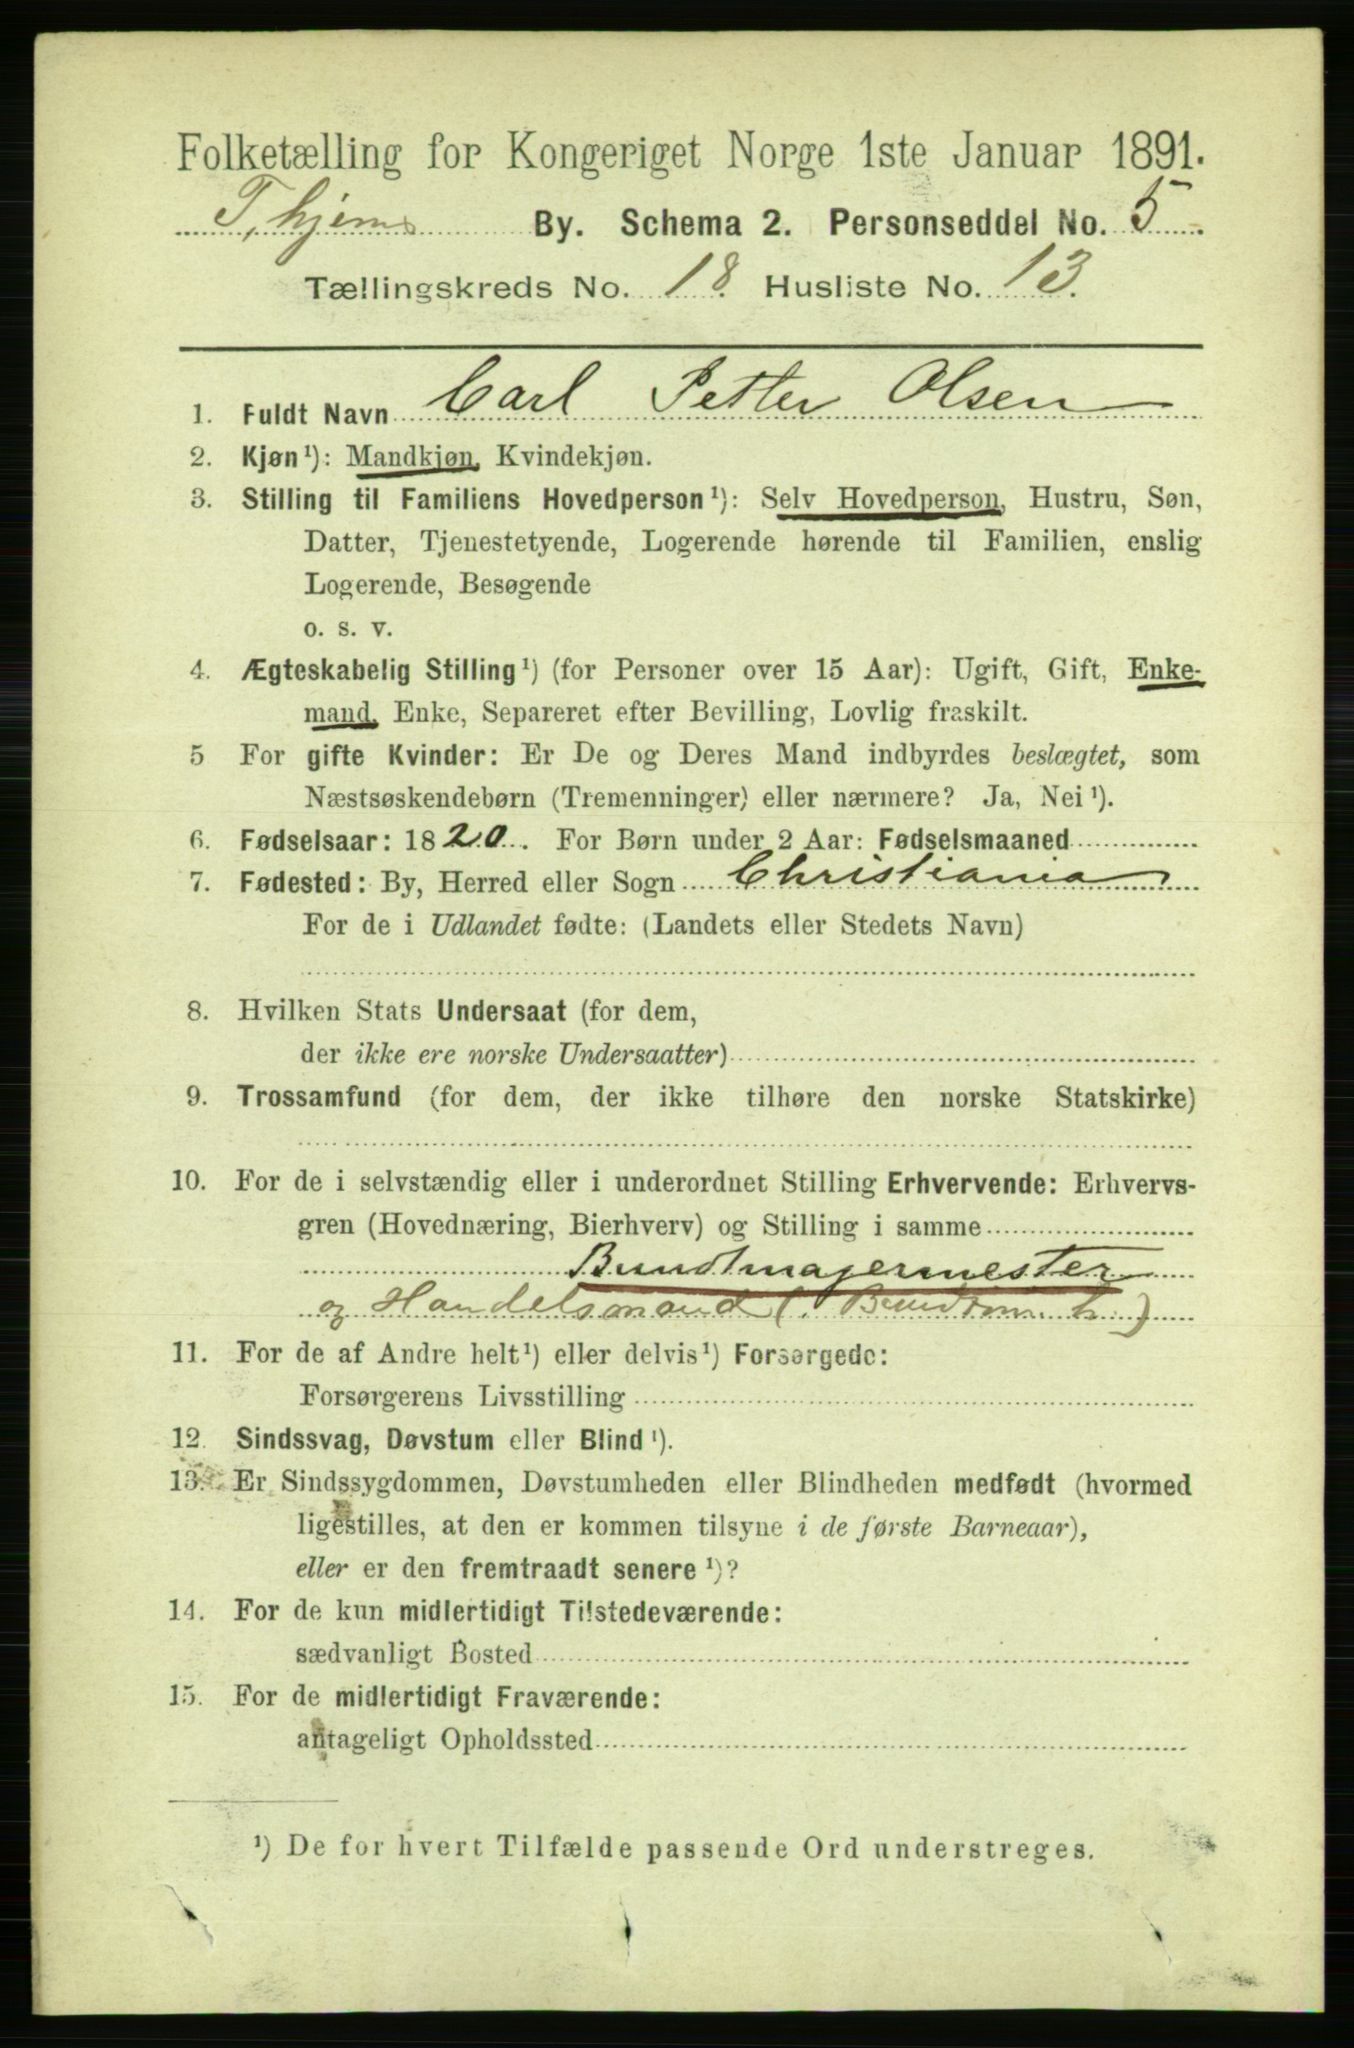 Folketælling for Kongeriget Norge 1ste Januar 1891.
T.hjems By. Schema 2. Personseddel No. 5.
Tællingskreds No. 18. Husliste No. 13.
1. Fuldt Navn Carl Petter Olsen
2. Kjøn¹): Mandkjøn, Kvindekjøn.
3. Stilling til Familiens Hovedperson¹): Selv Hovedperson, Hustru, Søn,
Datter, Tjenestetyende, Logerende hørende til Familien, enslig
Logerende, Besøgende
o. s. v.
4. Ægteskabelig Stilling¹) (for Personer over 15 Aar): Ugift, Gift, Enke-
mand, Enke, Separeret efter Bevilling, Lovlig fraskilt.
5 For gifte Kvinder: Er De og Deres Mand indbyrdes beslægtet, som
Næstsøskendebørn (Tremenninger) eller nærmere? Ja, Nei¹).
6. Fødselsaar: 1820. For Børn under 2 Aar: Fødselsmaaned
7. Fødested: By, Herred eller Sogn Christiania
For de i Udlandet fødte: (Landets eller Stedets Navn)
8. Hvilken Stats Undersaat (for dem,
der ikke ere norske Undersaatter)
9. Trossamfund (for dem, der ikke tilhøre den norske Statskirke)
10. For de i selvstændig eller i underordnet Stilling Erhvervende: Erhvervs-
gren (Hovednæring, Bierhverv) og Stilling i samme
Bundtmagermester
og Handelsmand (
11. For de af Andre helt¹) eller delvis¹) Forsørgede:
Forsørgerens Livsstilling
12. Sindssvag, Døvstum eller Blind¹).
13. Er Sindssygdommen, Døvstumheden eller Blindheden medfødt (hvormed
ligestilles, at den er kommen tilsyne i de første Barneaar),
eller er den fremtraadt senere¹)?
14. For de kun midlertidigt Tilstedeværende:
sædvanligt Bosted
15. For de midlertidigt Fraværende:
antageligt Opholdssted
¹) De for hvert Tilfælde passende Ord understreges.